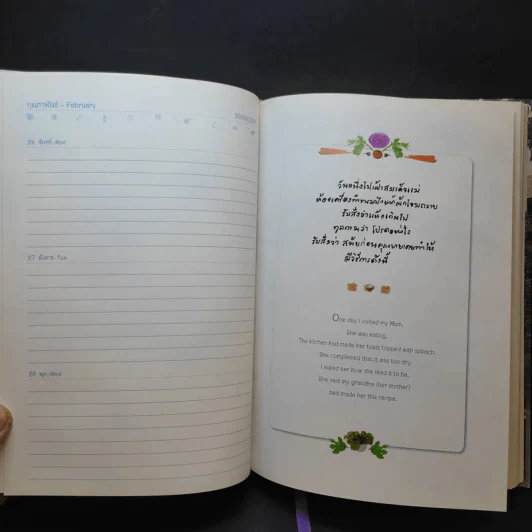 กุมภาพันธ์ - February
26 จันทร์-Mon
27 อังคาร-Tue
28 พุธ-Wed
วันหนึ่งไปเฝ้าสมเด็จแม่
ห้องเครื่องทำขนมปังหน้าผักโขมถวาย
รับสั่งว่าแห้งเกินไป
ทูลถามว่า โปรดอย่างไร
รับสั่งว่า สมัยก่อนคุณยายเคยทำให้
มีวิธีการดังนี้
One day I visited my Mom,
She was eating.
The kitchen had made her toast topped with spinach.
She complained that it was too dry.
I asked her how she liked it to be.
She said my grandma (her mother)
had made her this recipe.